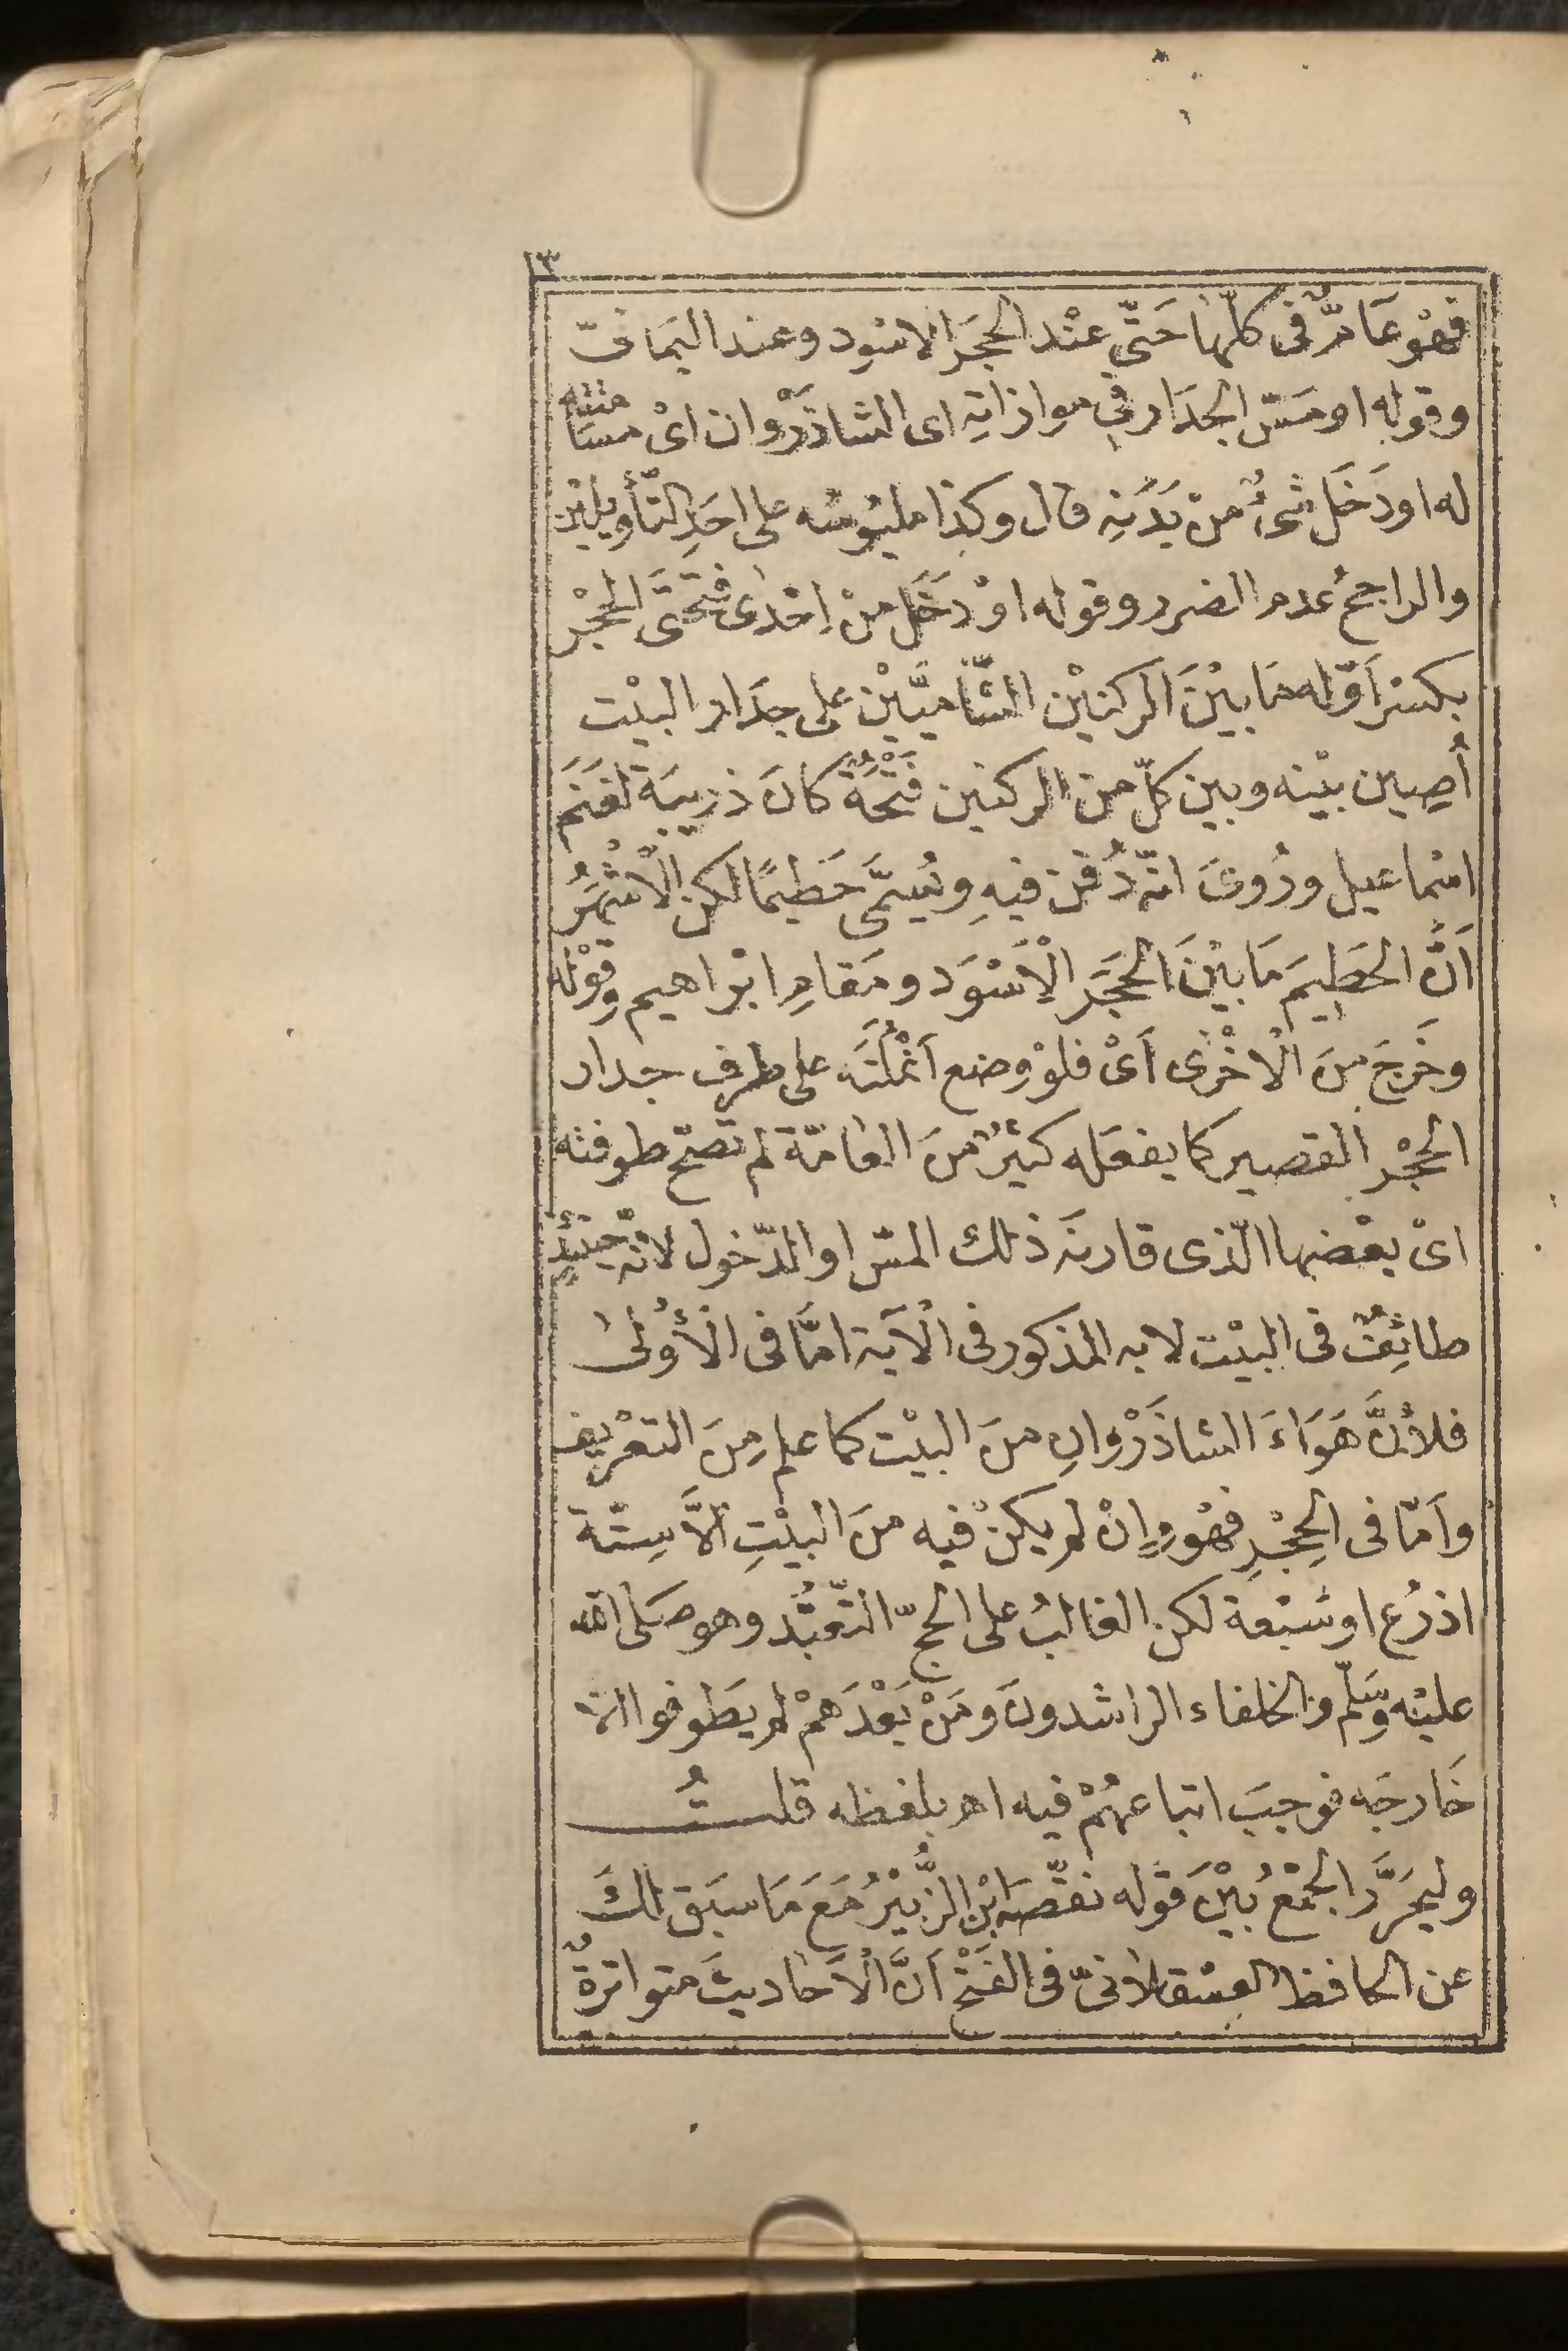 ١٣
فهْو عَامٌّ فى كلّها حَتّى عنْد الحجَر الاسْود وعند اليَمانىّ
وقوله او مَسّ الجدَار فى موازاتِه اى الشاذَرْوان اىْ مسَامتته
له او دَخَل شىءٌ منْ بَدَنِه قال وكذا ملبُوسُه على احَدِ التّأويلين
والراجحُ عدم الضرر وقوله اوْ دَخَل منْ اِحْدى فتْحتَى الحِجْر
بكسْر اَوّله مَا بيْنَ الركنيْن الشّاميَّيْن على جدَار البيْت
بيْنه وبين كلّ من الركنين فَتْحَةٌ كانَ ذريبَة لغَنَم
اسْماعيل ورُوىَ انّه دُفن فيهِ ويُسمَّى حَطيمًا لكن الْاَشْهَرُ
اَنَّ الحَطِيمَ مَا بيْنَ الحَجَر الْاَسْوَد ومَقامِ ابْراهيم وقوْله
وخَرجَ منَ الْاخْرٰى اَىْ فلوْ وضع اَنْمُلَتَه على طرف جدار
الحِجْر القصير كما يفعَله كثيرٌ منَ العَامّة لم تصحّ طوفته
اىْ بعْضها الّذى قارنَه ذلك المسّ او الدّخول لانّه حينئِذٍ
طائِفٌ فى البيْت لا به المذكور فى الْآية امَّا فى الْأُولىٰ
فلانَّ هَوَاءَ الشاذَرْوانِ منَ البيْت كما علم مِنَ التعْريف
وَاَمّا فى الحِجْرِ فهْو وإنْ لم يكنْ فيه منَ البيْتِ الَّا سِتّة
اذرُع او سَبْعة لكن الغالبُ على الحجّ التّعَبُّد وهو صَلى الله
عليْه وَسَلّم والخلفاء الراشدونَ ومَنْ بَعْدَهمْ لم يَطوفوا الّا
خَارجَه فوجبَ اتباعهُمْ فيه اهـ بلفظه قلــتُ
وليحَرَّر الجمْعُ بيْنَ قوْله نقّصَه ابْن الزُّبيْر مَعَ مَا سبَق لكَ
عن الحافظ العسْقلانىّ فى الفَتْح اَنَّ الْاَحاديثَ متواترةٌ